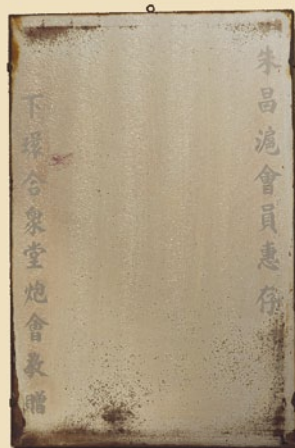 朱昌滬會員惠存
下環合衆堂炮會敬贈